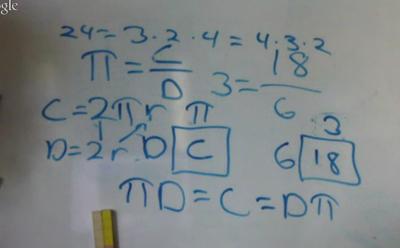 gle
24 = 3 · 2 · 4 = 4 · 3 · 2
π = C/D 3 = 18/6
C = 2πr π 3
D = 2r D C 6 18
πD = C = Dπ